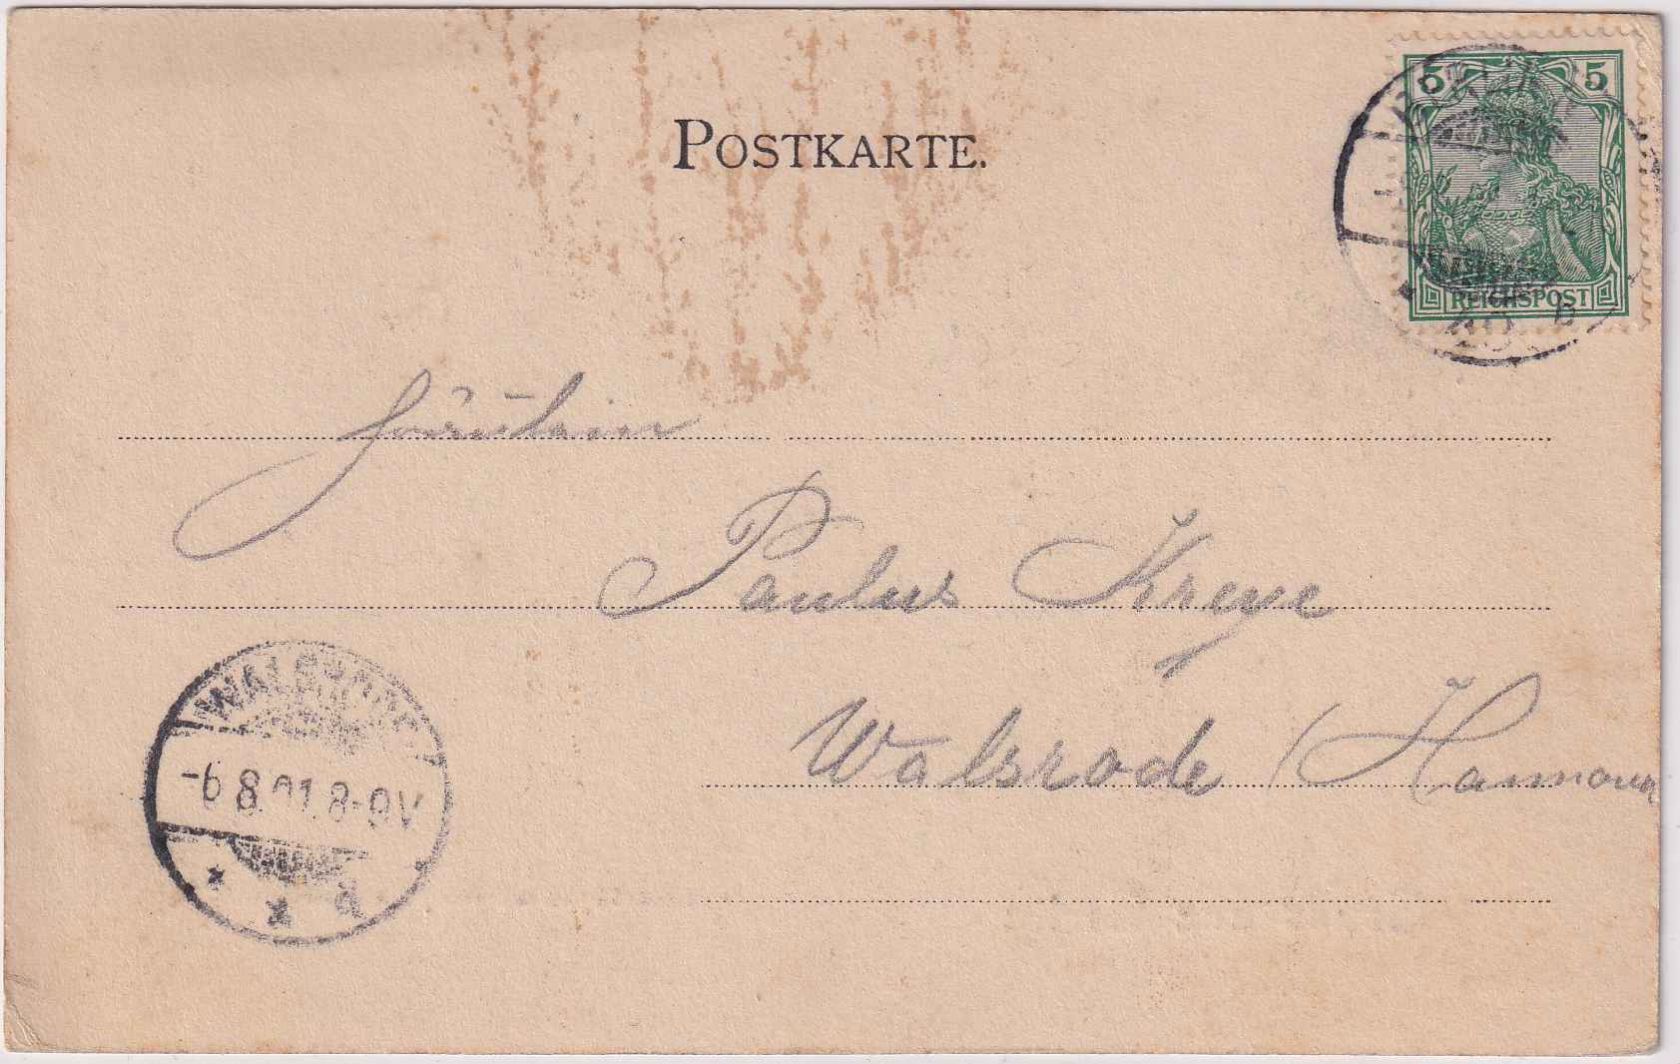 POSTKARTE.
5 5
REICHSPOST
Fräulein
Paulus Kreye
Walsrode (Hannover
WALSRODE
-6.8.01.8-9V
* * d